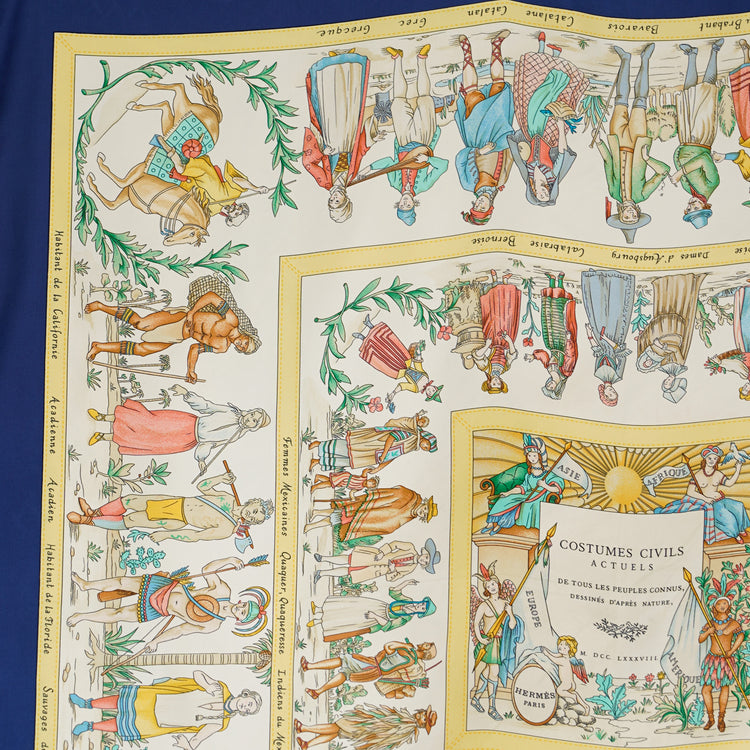 Grecque Grec Catalan Catalane Bavarois
Brabant
Calabraise Bernoise Dames d'Augsbourg
Habitant de la Californie
Acadienne
Acadien
Habitant de la Floride
Sauvages
Femmes Mexicaines
Quaquer, Quaqueresse
Indiens du
ASIE
AFRIQUE
COSTUMES CIVILS
ACTUELS
DE TOUS LES PEUPLES CONNUS,
DESSINÉS D'APRÈS NATURE,
M. DCC. LXXXVIII.
EUROPE
AMERIQUE
HERMÈS
PARIS